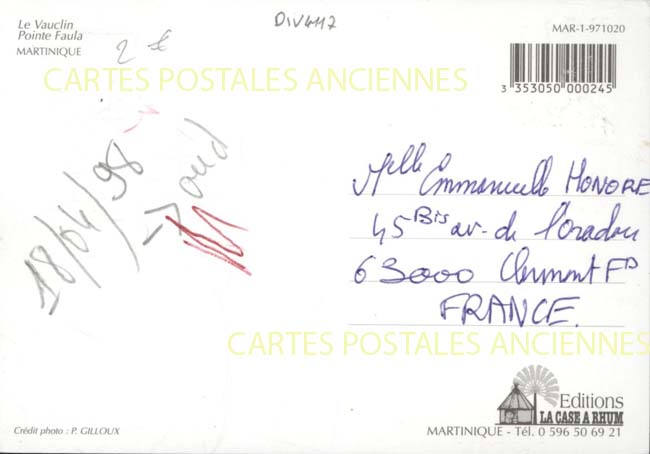 Le Vauclin
Pointe Faula
MARTINIQUE
2 €
DIV4117
MAR-1-971020
3 353050 000245
CARTES POSTALES ANCIENNES
18/04/98
Mlle Emmanuelle HONORE
45 Bis av. de l'oradou
63000 Clermont Fd
FRANCE.
CARTES POSTALES ANCIENNES
Editions
LA CASE A RHUM
MARTINIQUE - Tél. 0 596 50 69 21
Crédit photo : P. GILLOUX